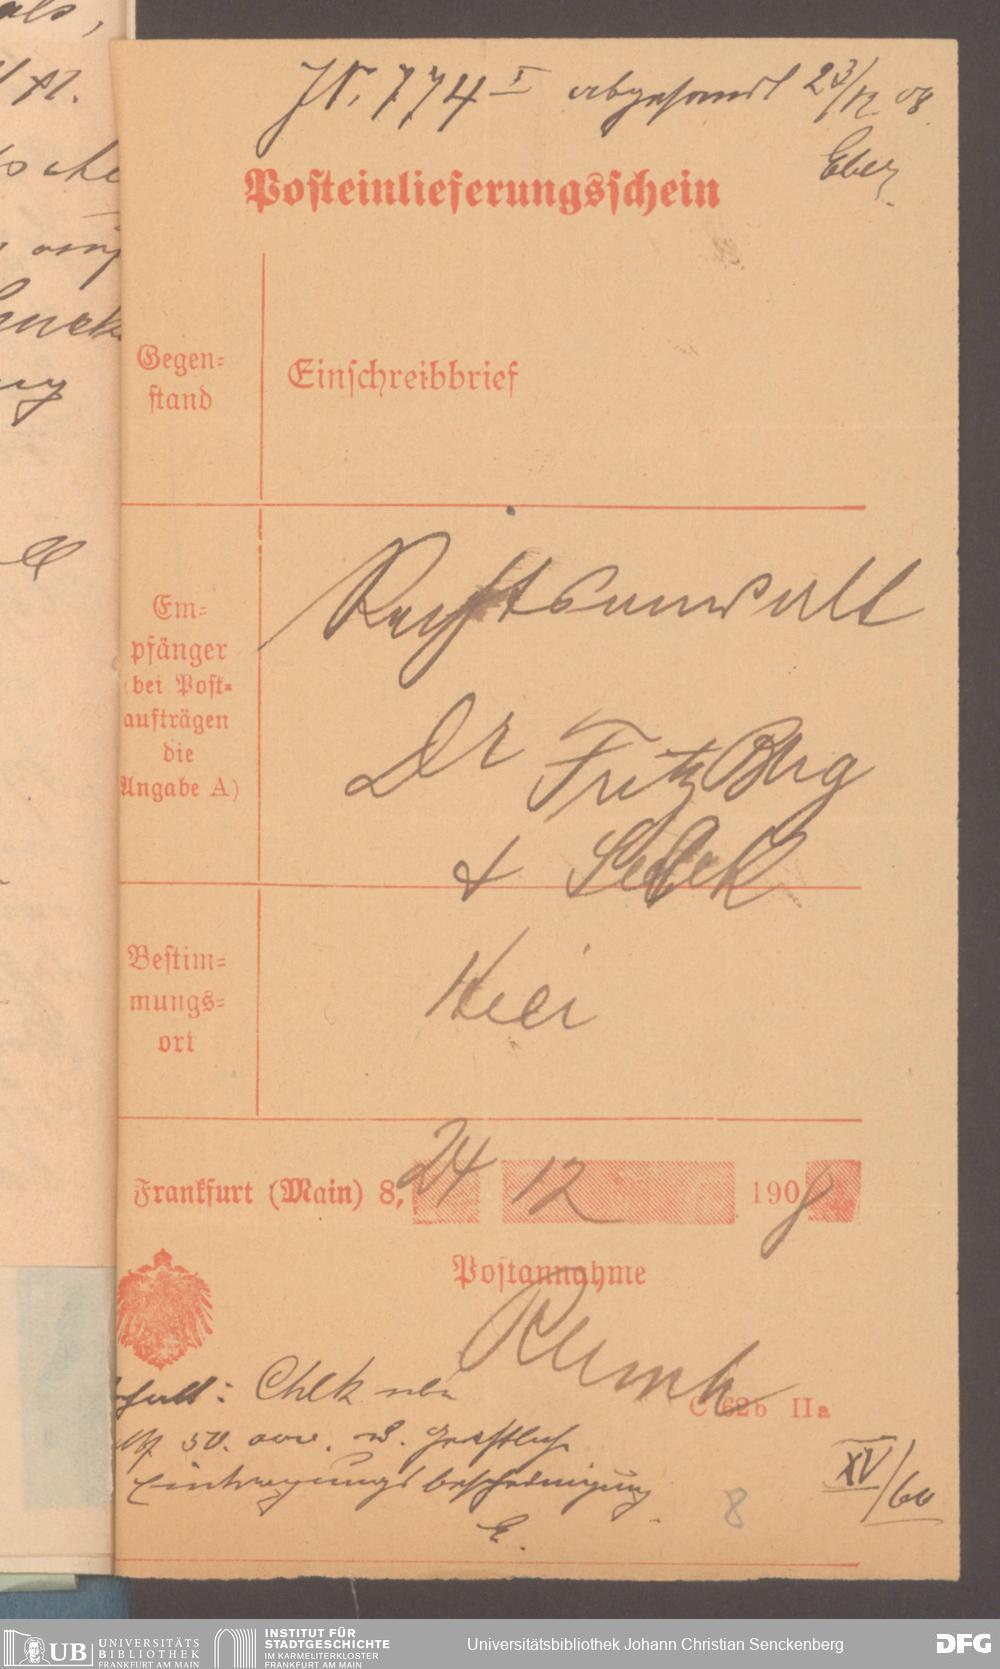 J. N. 774 I abgesandt 23/12. 08.
Eber
Posteinlieferungsschein
Gegen=
stand
Einschreibbrief
Em=
pfänger
bei Post=
aufträgen
die
Angabe A)
Rechtsanwalt
Dr Fritz Berg
&
Bestim=
mungs=
ort
Hier
Frankfurt (Main) 8, 24 12 1908
Postannahme
C 62b IIa
Eintragungsbescheinigung
E.
XV/60
8
UB UNIVERSITÄTS
BIBLIOTHEK
FRANKFURT AM MAIN
INSTITUT FÜR
STADTGESCHICHTE
IM KARMELITERKLOSTER
FRANKFURT AM MAIN
Universitätsbibliothek Johann Christian Senckenberg
DFG